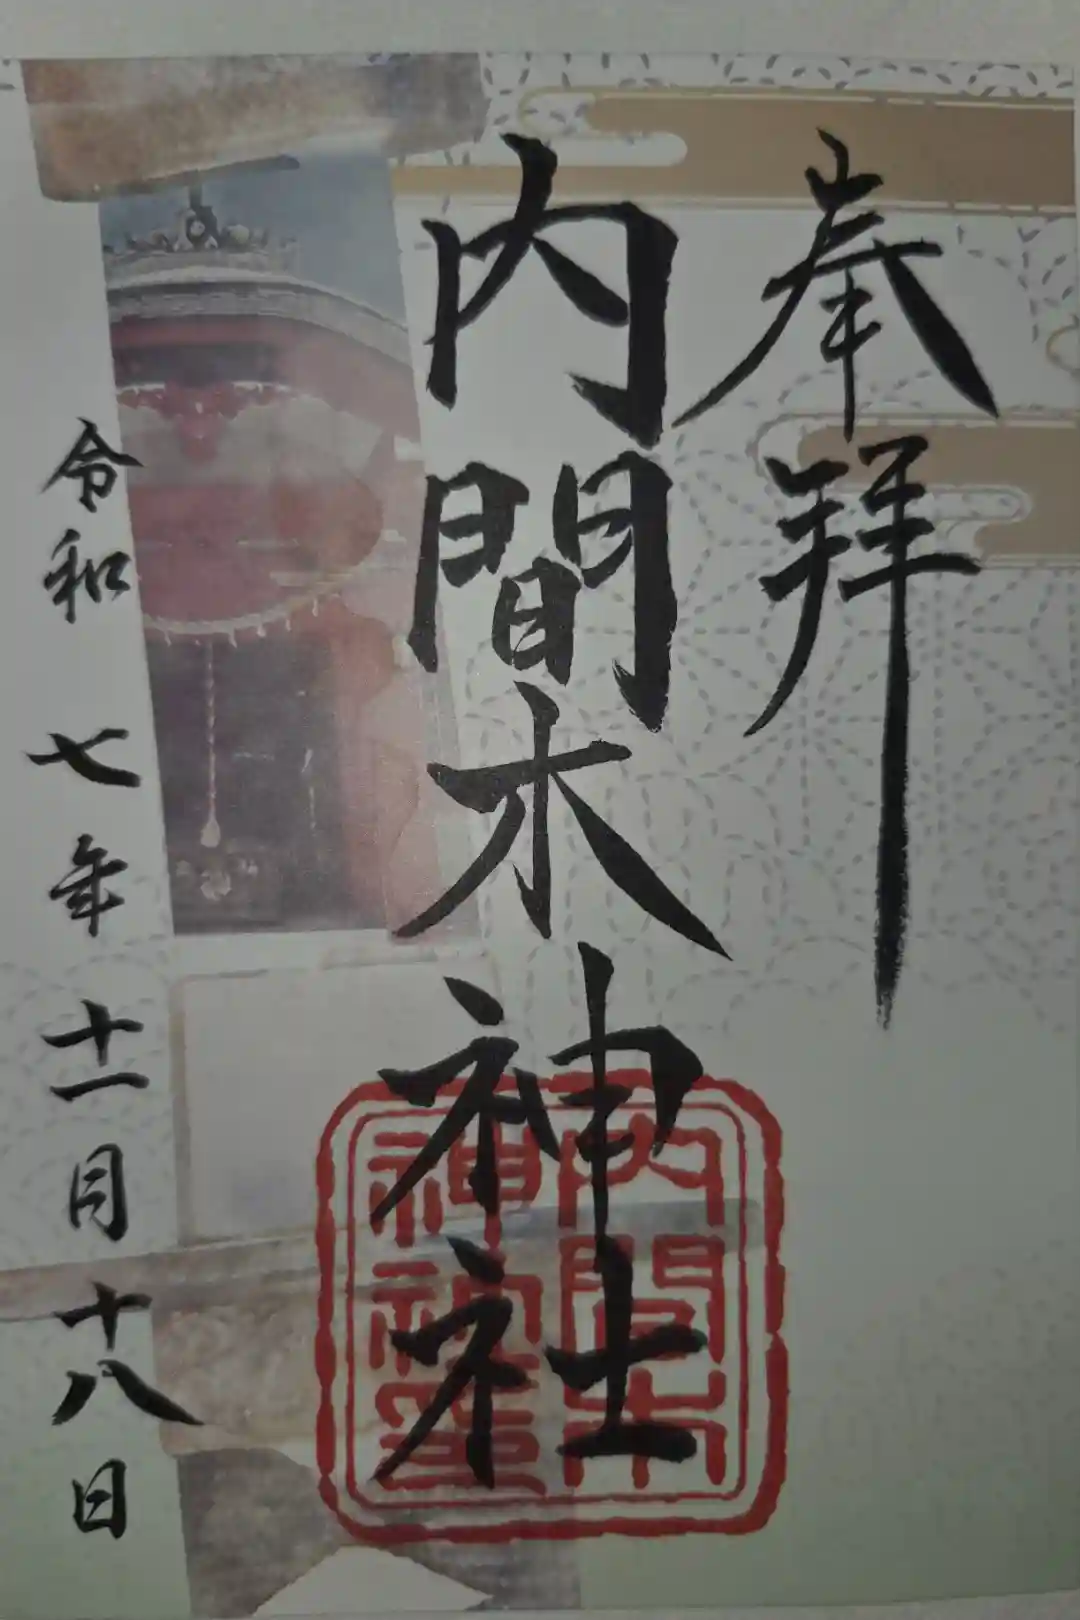 奉拝
内間木神社
内間木
神社
令和七年十一月十八日